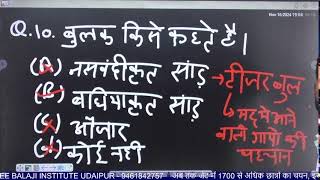 Nov 16/2024 19:04
Q.10. बुलक किसे कहते है।
(A) नसबंदीकृत सांड → टीजर बुल
(B) बधियाकृत सांड
↳ मद में आने
(C) औजार
वाली गायों की
कोई नहीं
पहचान
EE BALAJI INSTITUTE UDAIPUR - 9461842757 अब तक जेट में 1700 से अधिक छात्रों का चयन,